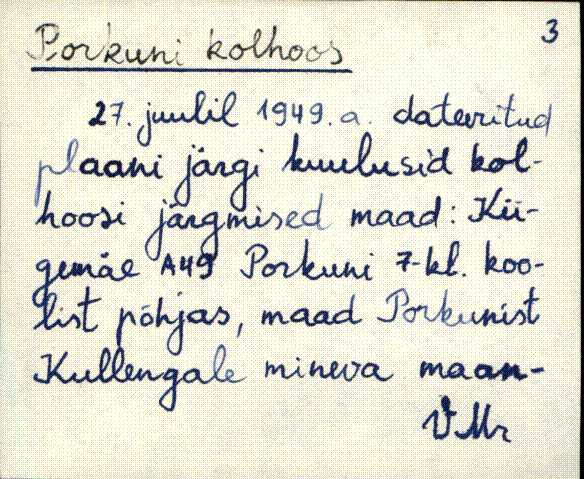 3
Porkuni kolhoos
27. juulil 1949. a. dateeritud
plaani järgi kuulusid kol-
hoosi järgmised maad: Kii-
gemäe A49 Porkuni 7-kl. koo-
list põhjas, maad Porkunist
Kullengale mineva maan-
VMr